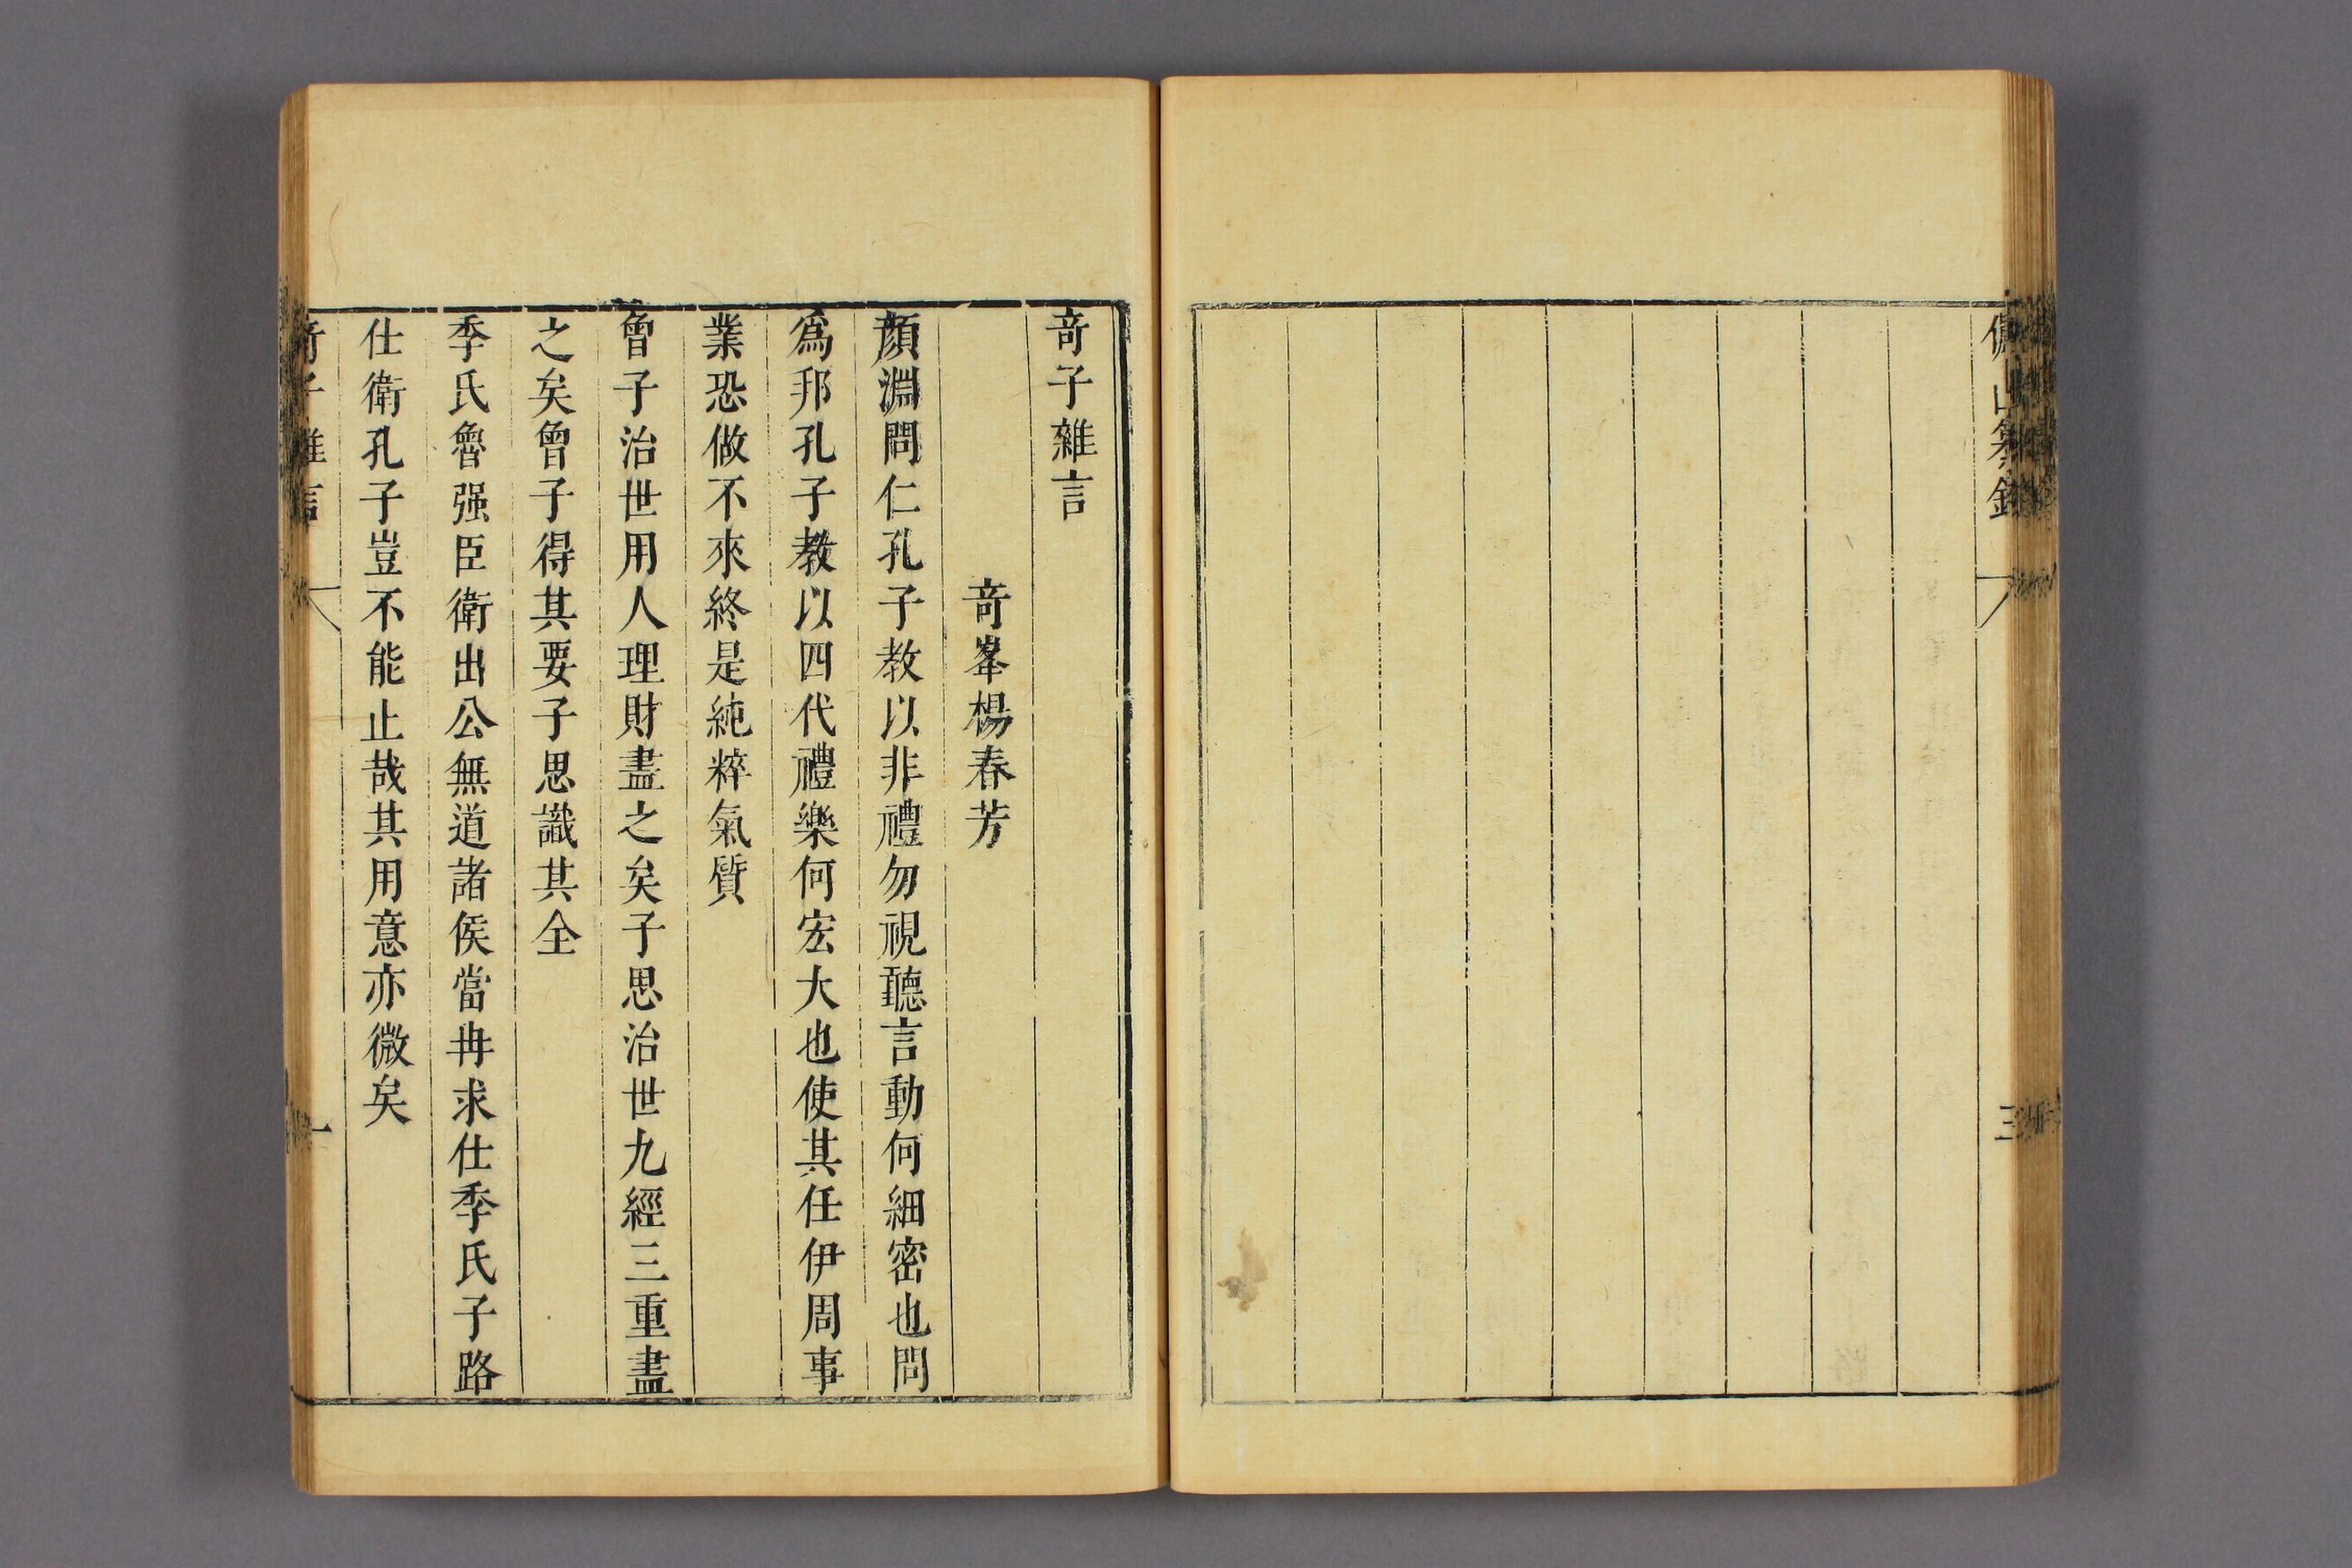 三
奇子雜言
奇峯楊春芳
顏淵問仁孔子教以非禮勿視聽言動何細密也問
爲邦孔子教以四代禮樂何宏大也使其任伊周事
業恐做不來終是純粹氣質
曾子治世用人理財盡之矣子思治世九經三重盡
之矣曾子得其要子思識其全
季氏魯强臣衛出公無道諸侯當冉求仕季氏子路
仕衛孔子豈不能止哉其用意亦微矣
奇子雜言
一